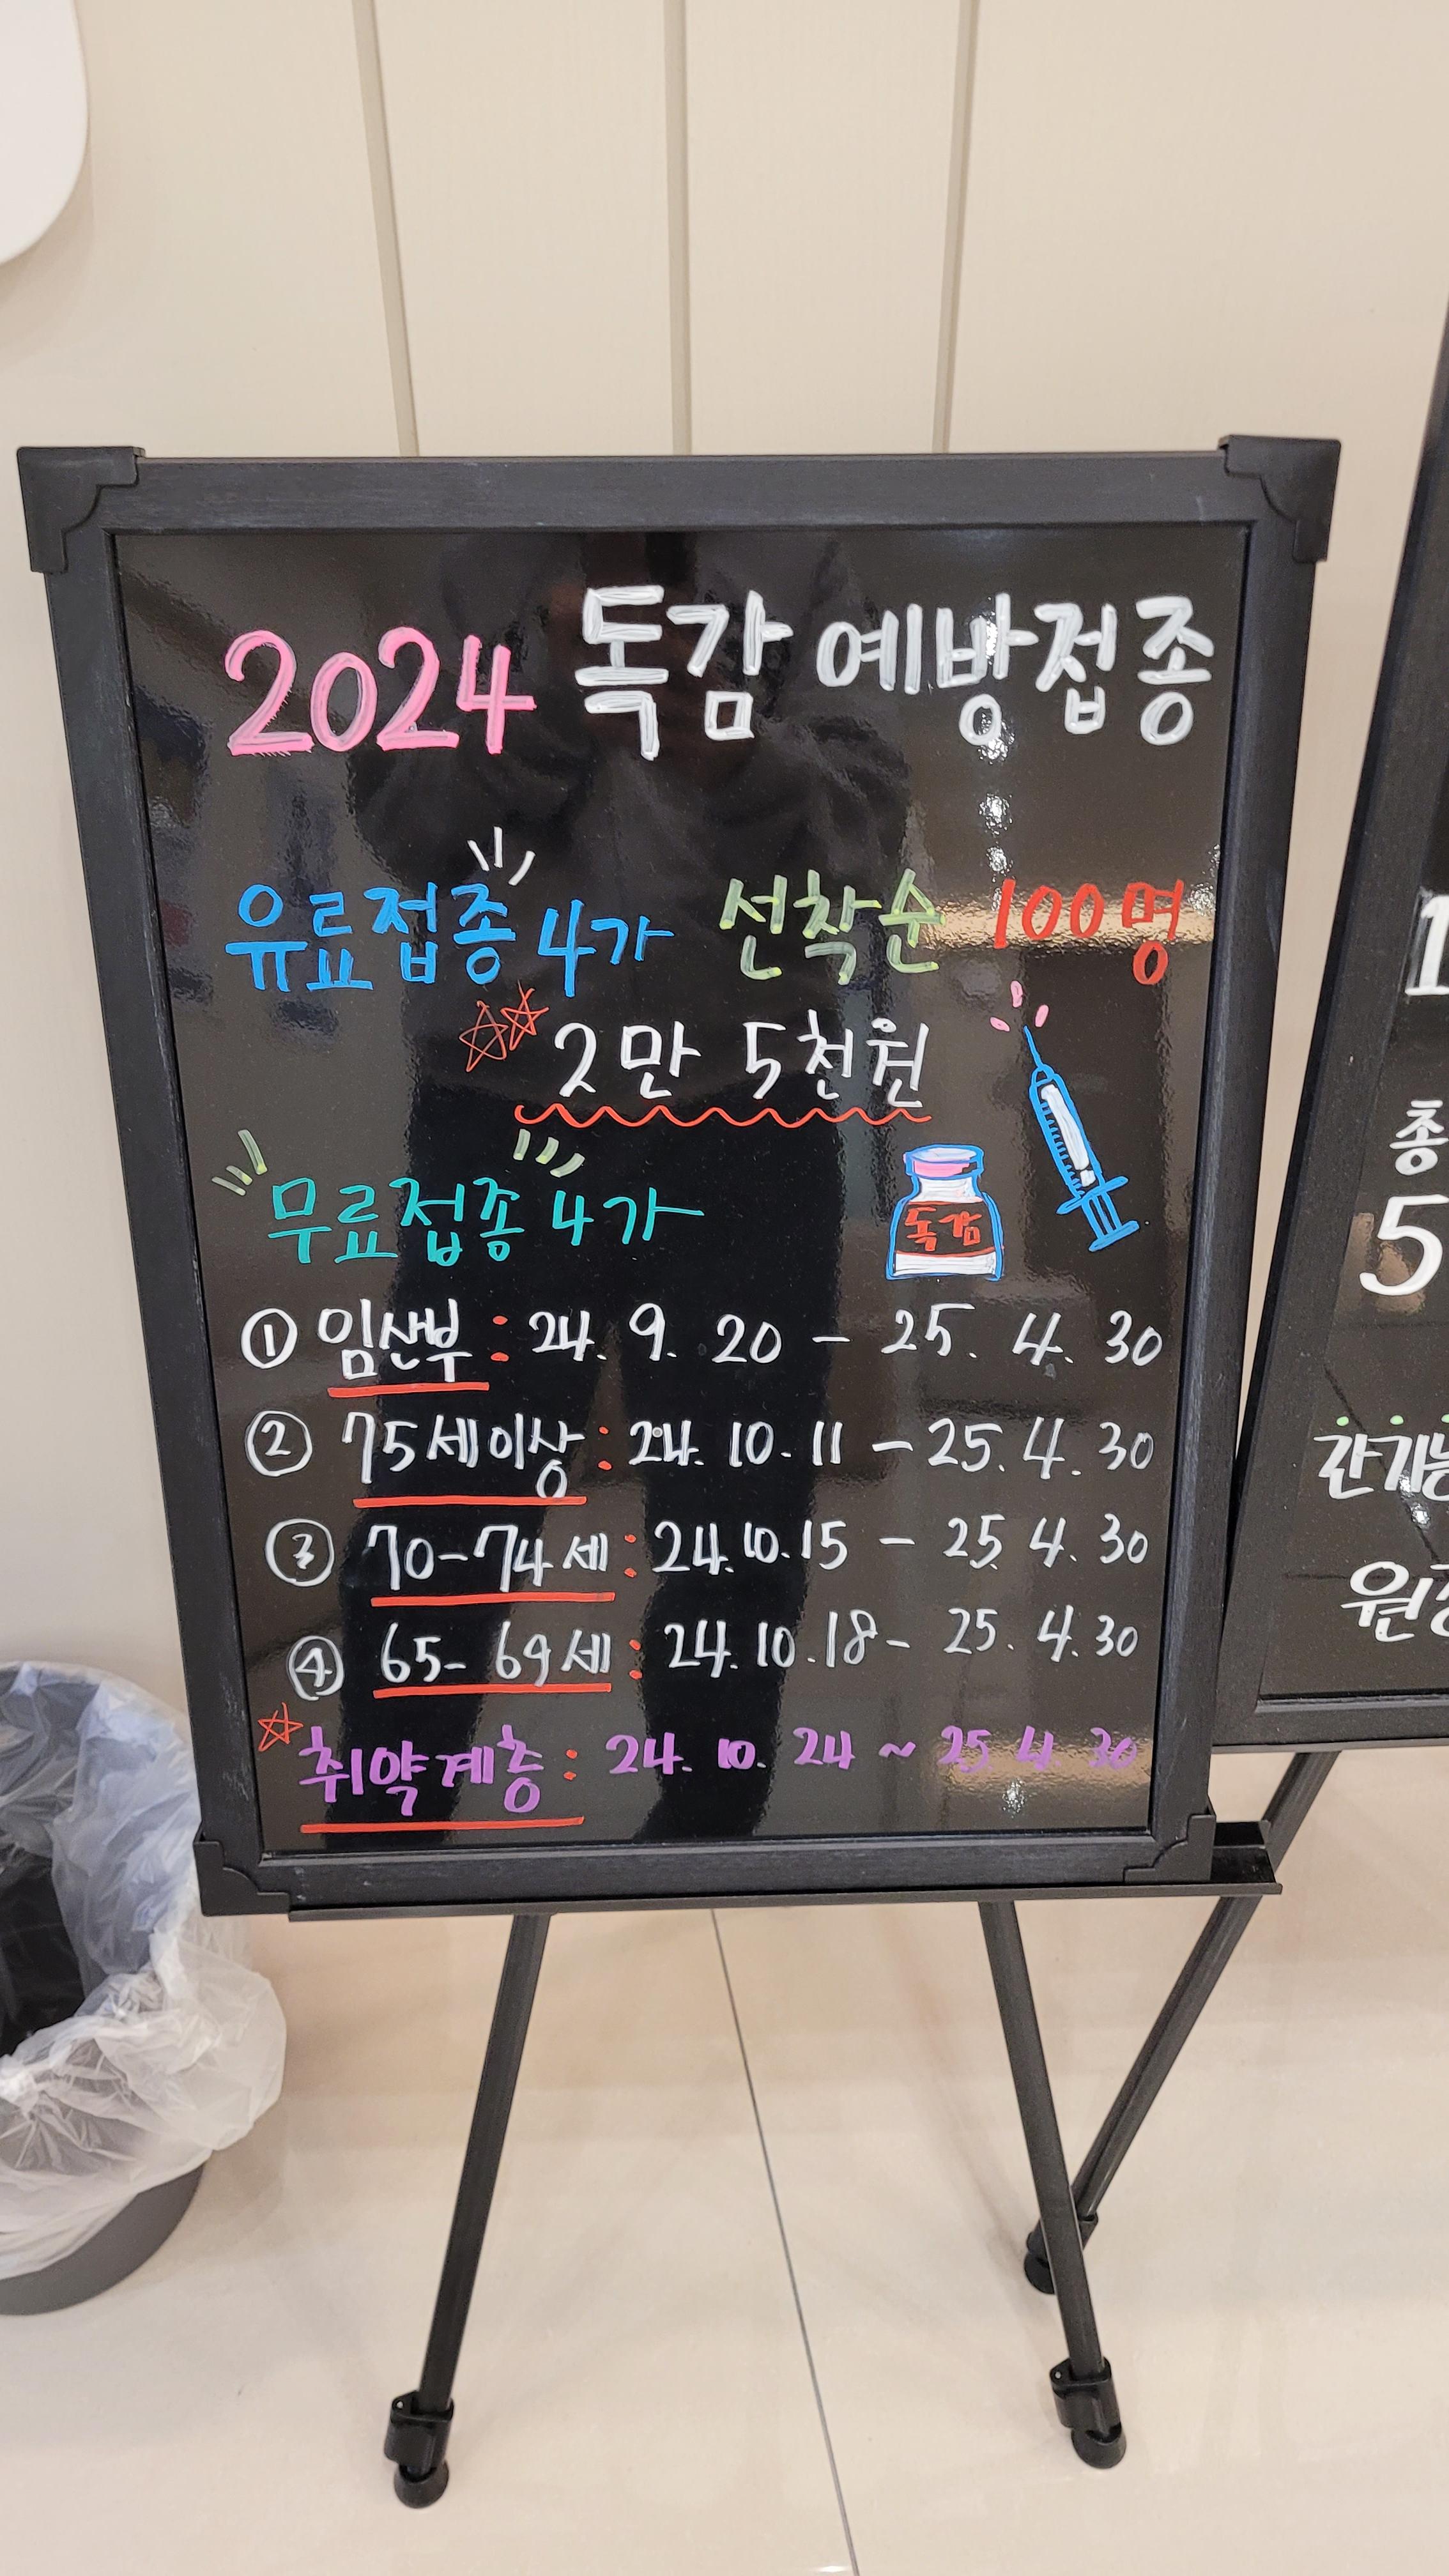 2024 독감 예방접종
유료접종 4가 선착순 100명
2만 5천원
무료접종 4가
독감
① 임산부 : 24. 9. 20 - 25. 4. 30
② 75세이상 : 24. 10. 11 - 25. 4. 30
③ 70-74세 : 24. 10. 15 - 25 4. 30
④ 65- 69세 : 24. 10. 18 - 25. 4. 30
취약계층 : 24. 10. 24 ~ 25 4 30
총
5
간기능